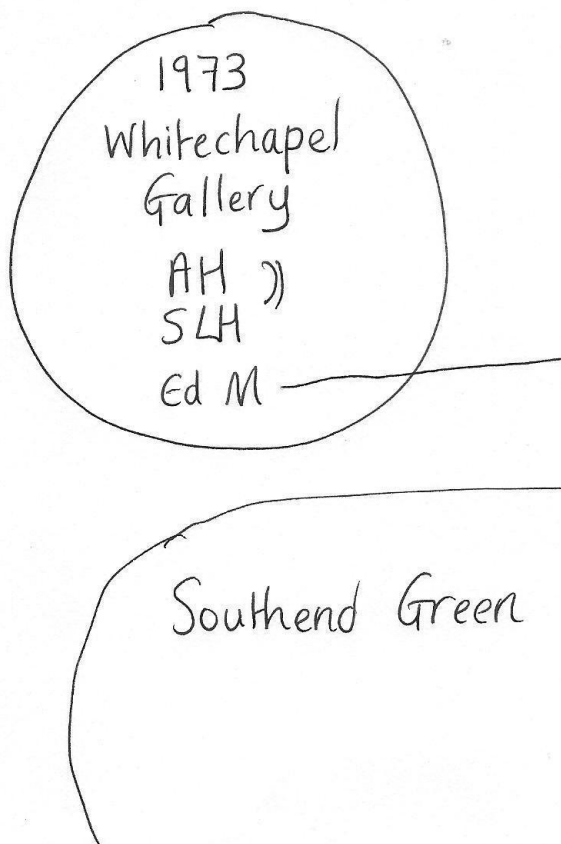 1973
Whitechapel
Gallery
AH ))
SLH
Ed M
Southend Green